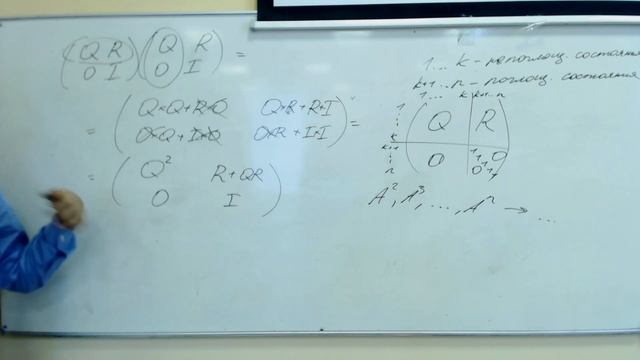 ( Q R ) ( Q R ) =
( O I ) ( O I )
= ( Q×Q+R×O Q×R+R×I ) =
( O×Q+I×O O×R+I×I )
= ( Q² R+QR )
( O I )
1 ... k – непоглощ. состояния
k+1 ... n – поглощ. состояния
1 ... k k+1 ... n
1
⋮
k
k+1
⋮
n
Q R
O
A², A³, ..., Aⁿ → ...